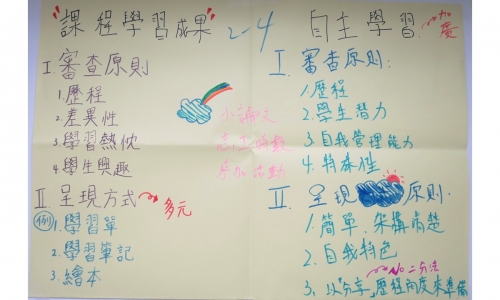 "課程學習成果"
I 審查原則
1.歷程
2.差異性
3.學習熱忱
4.學生興趣
II 呈現方式 多元
例 1.學習單
2.學習筆記
3.繪本
2-4
小論文
自主學習 加廣
I. 審查原則:
1.歷程
2.學生潛力
3.自我管理能力
4.特殊性
II. 呈現 原則.
1.簡單.架構清楚
2.自我特色
No二分法
3.以"分享,歷程角度來準備